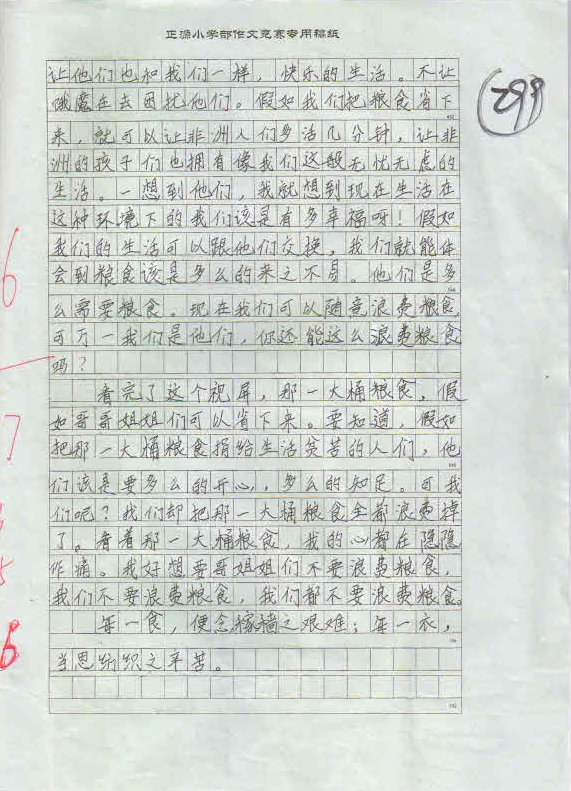 正源小学部作文竞赛专用稿纸
299
让他们也和我们一样，快乐的生活。不让
饿魔在去困扰他们。假如我们把粮食省下
来，就可以让非洲人们多活几分钟，让非
洲的孩子们也拥有像我们这般无忧无虑的
生活。一想到他们，我就想到现在生活在
这种环境下的我们该是有多幸福呀！假如
我们的生活可以跟他们交换，我们就能体
会到粮食该是多么的来之不易。他们是多
么需要粮食。现在我们可以随意浪费粮食，
可万一我们是他们，你还能这么浪费粮食
吗？
看完了这个视屏，那一大桶粮食，假
如哥哥姐姐们可以省下来。要知道，假如
把那一大桶粮食捐给生活贫苦的人们，他
们该是要多么的开心，多么的知足。可我
们呢？我们却把那一大桶粮食全都浪费掉
了。看着那一大桶粮食，我的心都在隐隐
作痛。我好想要哥姐姐们不要浪费粮食，
我们不要浪费粮食，我们都不要浪费粮食。
每一食，便念稼穑之艰难；每一衣，
当思纺织之辛苦。